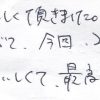 しく頂きました。
て、今回、
いしくて、最高